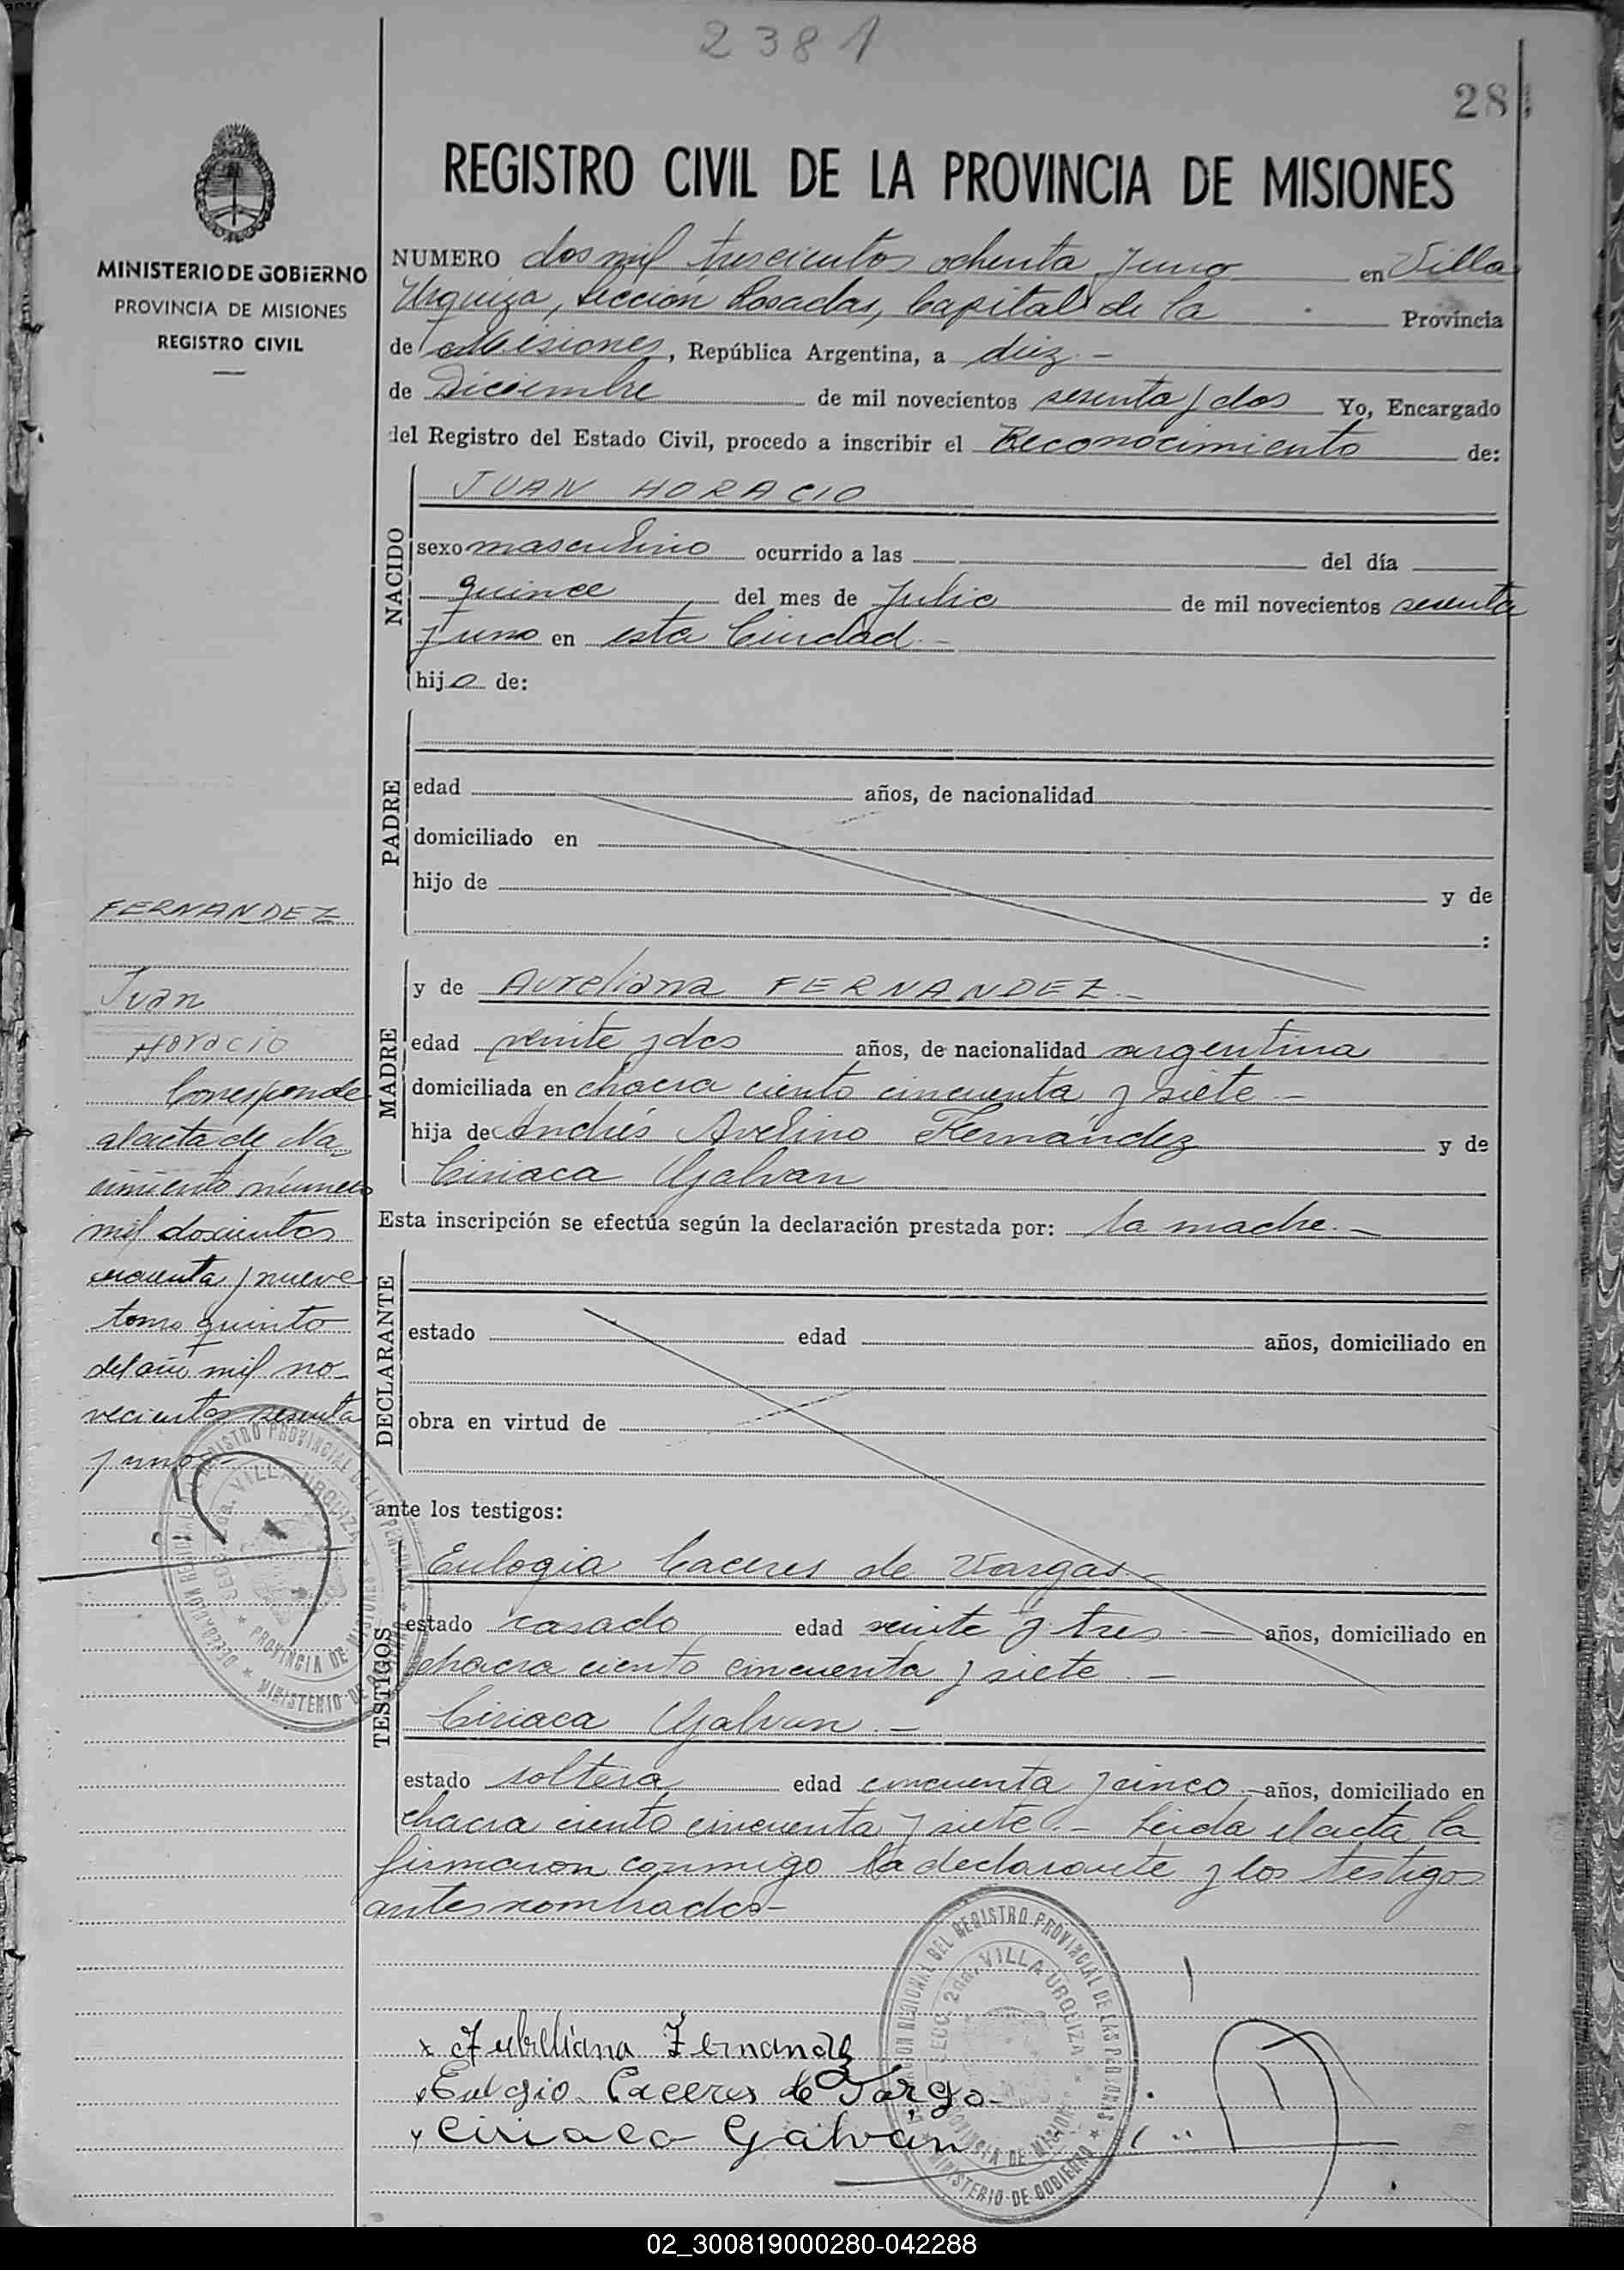 2381
28
MINISTERIO DE GOBIERNO
PROVINCIA DE MISIONES
REGISTRO CIVIL
REGISTRO CIVIL DE LA PROVINCIA DE MISIONES
NUMERO dos mil trescientos ochenta y uno en Villa
Urquiza, Sección Posadas, Capital de la Provincia
de Misiones, República Argentina, a diez -
de Diciembre de mil novecientos sesenta y dos Yo, Encargado
del Registro del Estado Civil, procedo a inscribir el Reconocimiento de:
NACIDO
JUAN HORACIO
sexo masculino ocurrido a las del día
quince del mes de Julio de mil novecientos sesenta
y uno en esta Ciudad -
hijo de:
PADRE
edad años, de nacionalidad
domiciliado en
hijo de y de
:
MADRE
y de Aureliana FERNANDEZ.-
edad veinte y dos años, de nacionalidad argentina
domiciliada en chacra ciento cincuenta y siete -
hija de Andrés Avelino Fernández y de
Ciriaca Galvan
Esta inscripción se efectúa según la declaración prestada por: la madre.-
DECLARANTE
estado edad años, domiciliado en
obra en virtud de
ante los testigos:
TESTIGOS
Eulogia Caceres de Vargas -
estado casado edad veinte y tres - años, domiciliado en
chacra ciento cincuenta y siete -
Ciriaca Galvan.-
estado soltera edad cincuenta y cinco - años, domiciliado en
chacra ciento cincuenta y siete.- Leida el acta la
firmaron conmigo la declarante y los testigos
antes nombrados-
FERNANDEZ
Juan
Horacio
Corresponde
al acta de Na-
cimiento número
mil doscientos
cincuenta y nueve
tomo quinto
del año mil no-
vecientos sesenta
y uno-
DELEGACION REGIONAL DEL REGISTRO PROVINCIAL DE LAS PERSONAS
SECC. 2da. VILLA URQUIZA
PROVINCIA DE MISIONES
MINISTERIO DE GOBIERNO
x Aubelliana Fernandez
x Eulogio Caceres de Vargo-
x Ciriaca Galván
DELEGACION REGIONAL DEL REGISTRO PROVINCIAL DE LAS PERSONAS
SECC. 2da. VILLA URQUIZA
PROVINCIA DE MISIONES
MINISTERIO DE GOBIERNO
02_300819000280-042288